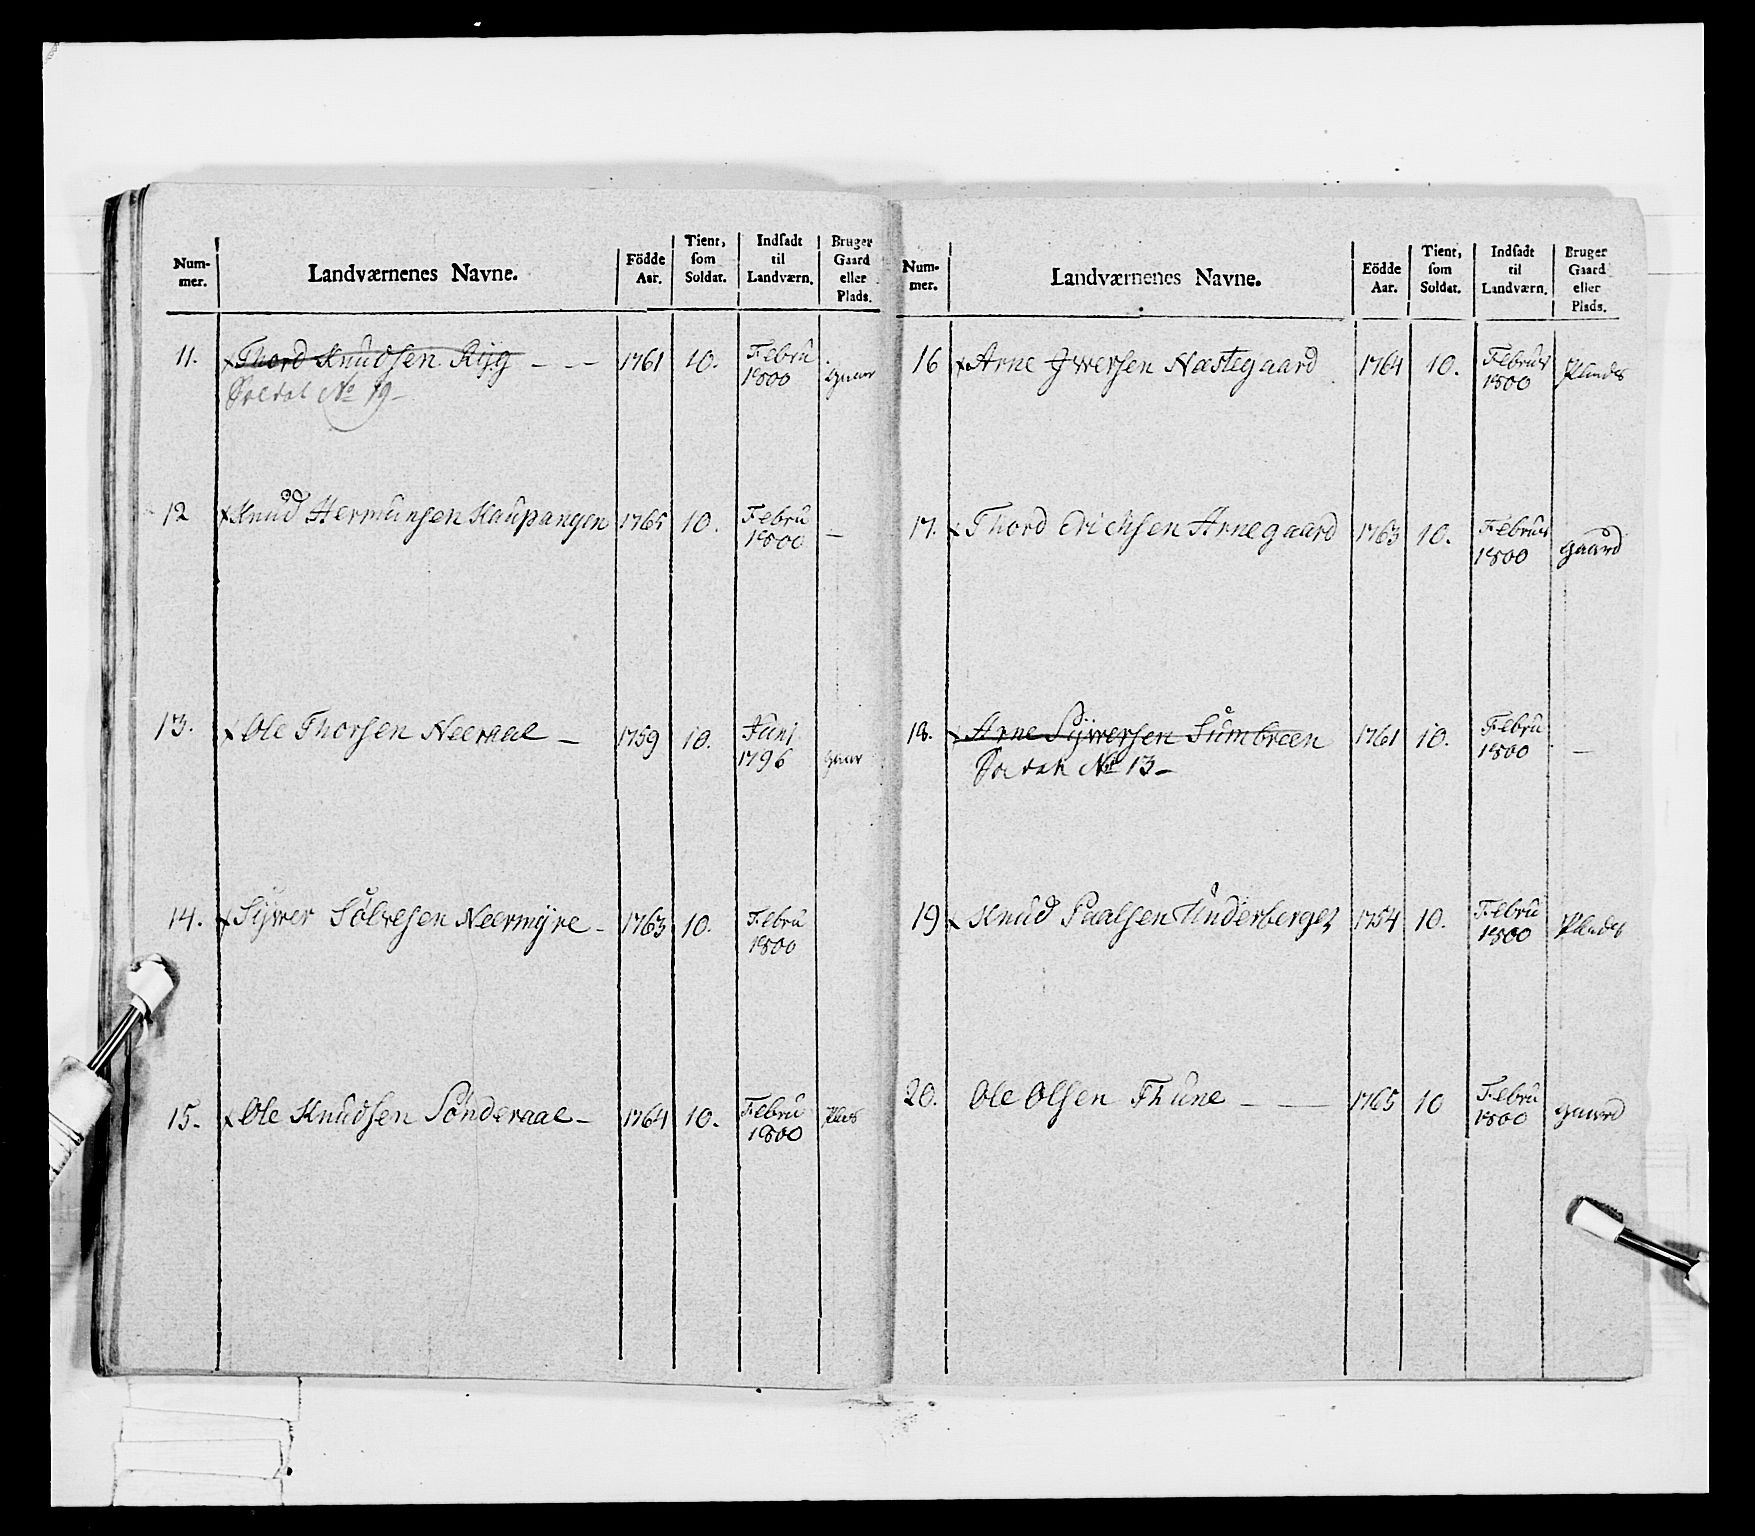 Num-
mer.
Landværnenes Navne.
Födde
Aar.
Tient,
som
Soldat.
Indsadt
til
Landværn.
Bruger
Gaard
eller
Plads.
11. Thord Knudsen Ryg - - - 1761 10. Febru
1800
Soldat No 19-
12 Knud Hermunsen Kaupangen 1765 10. Febru -
1800
13. Ole Thorsen Neeraal - 1759 10. Juni
1796 gaar
14. Sÿver Sölvesen Neermÿre - 1763 10. Febru
1800
15. Ole Knudsen Sönderaal - 1764 10. Febru Plads
1800
Num-
mer.
Landværnenes Navne.
Födde
Aar.
Tient,
som
Soldat.
Indsadt
til
Landværn.
Bruger
Gaard
eller
Plads.
16 Arne Iwersen Næstegaard 1764 10. Februr
1800
17. Thord Erichsen Arnegaard 1763 10. Februr
1800 gaard
18. Arne Sÿwersen Sumbreen 1761 10. Febru
1800 -
Soldat No 13-
19 Knud Paalsen Underberget 1754 10. Febru
1800
20. Ole Olsen Thune - — 1765 10 Febru
1800 gaard